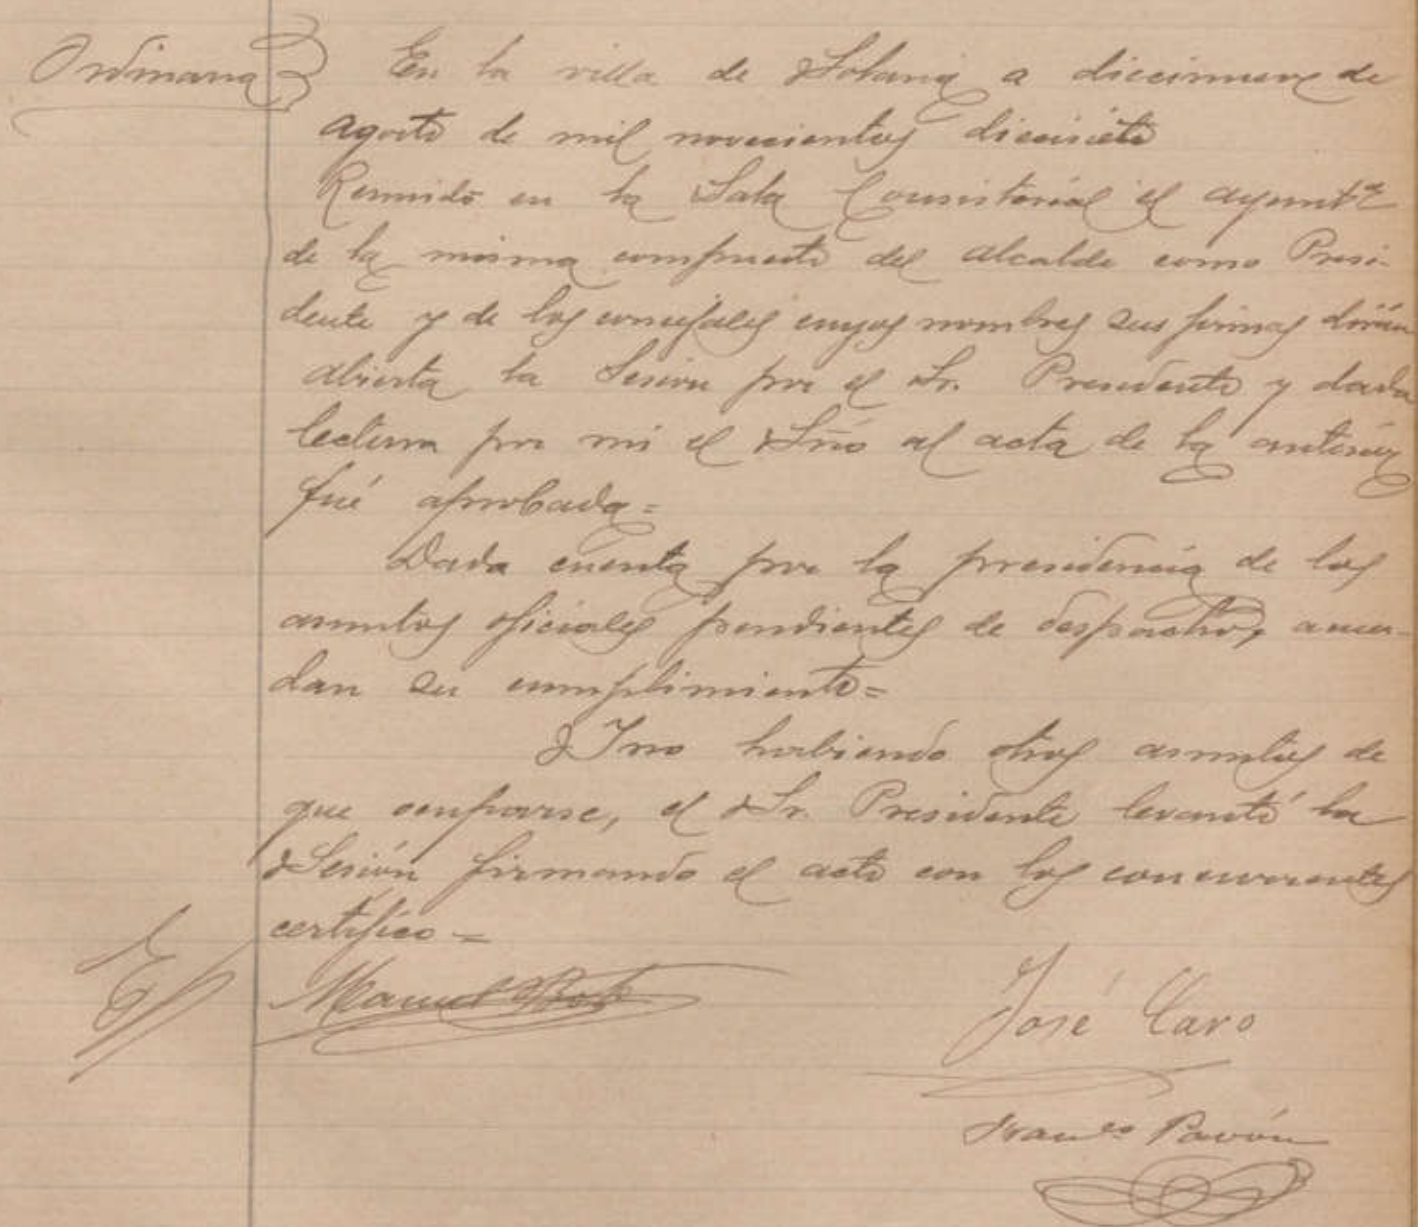 Ordinaria
En la villa de Solana a diecinueve de
agosto de mil novecientos diecisiete
Reunido en la Sala Consistorial el ayuntº
de la misma compuesto del alcalde como Presi-
dente y de los concejales cuyos nombres sus firmas dirán
abierta la Sesion por el Sr. Presidente y dada
lectura por mi el Srio al acta de la anterior
fué aprobada=
Dada cuenta por la presidencia de los
asuntos oficiales pendientes de despacho, acuer-
dan su cumplimiento=
Y no habiendo otros asuntos de
que ocuparse, el Sr. Presidente levantó la
Sesión firmando el acto con los concurrentes
certifico=
Manuel
José Caro
Franco Pavón